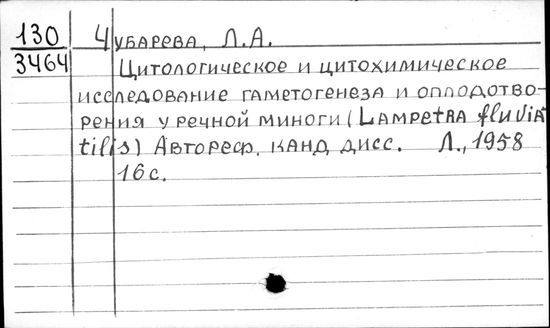 130 Чубарева, Л.А.
3464 Цитологическое и цитохимическое
исследование гаметогенеза и оплодотво-
рения у речной миноги (Lampetra fluvia
tilis) Автореф. канд. дисс. Л., 1958
16 с.